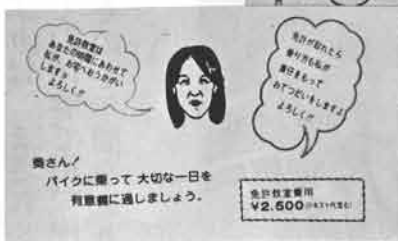 免許教室は
あなたの時間にあわせて
私が、お宅へおうかがい
します。
よろしく!!
免許が取れたら
乗り方も私が
責任をもって
おてつだいをしますよ
よろしく!!
奥さん!
バイクに乗って 大切な一日を
有意義に過しましょう。
免許教室費用
¥2,500(テキスト代含む)